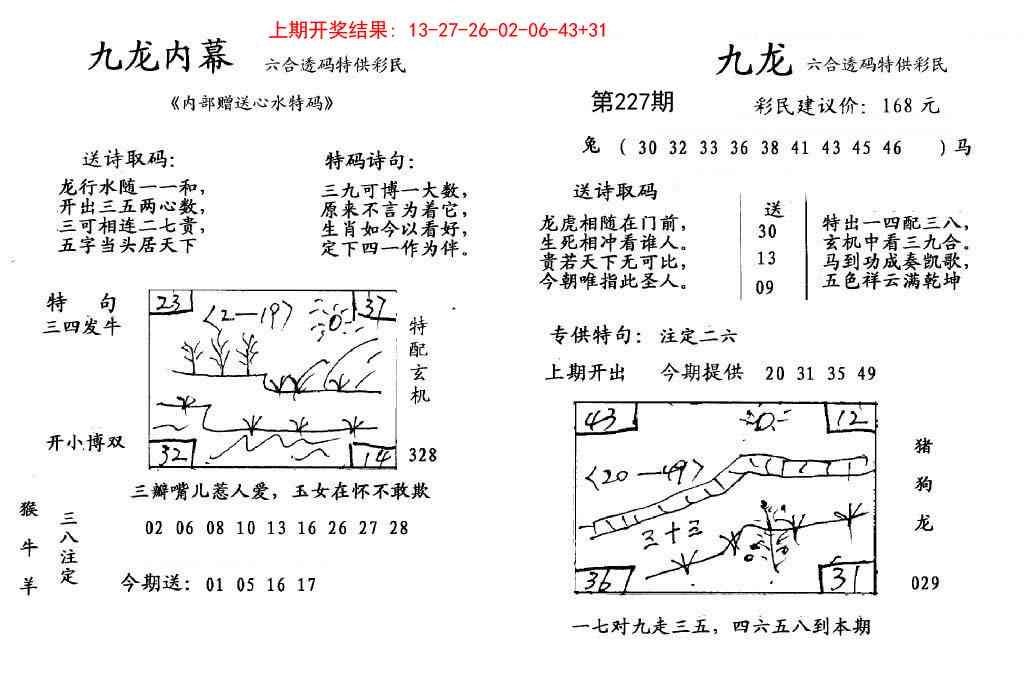 上期开奖结果：13-27-26-02-06-43+31
九龙内幕 六合透码特供彩民
《内部赠送心水特码》
送诗取码：
龙行水随一一和，
开出三五两心数，
三可相连二七贵，
五字当头居天下
特码诗句：
三九可博一大数，
原来不言为着它，
生肖如今以看好，
定下四一作为伴。
特 句
三四发牛
开小博双
23
37
〈2—19〉
32
14
特配玄机
328
三瓣嘴儿惹人爱，玉女在怀不敢欺
02 06 08 10 13 16 26 27 28
猴牛羊
三八注定
今期送：01 05 16 17
九龙 六合透码特供彩民
第227期
彩民建议价：168元
兔（30 32 33 36 38 41 43 45 46 ）马
送诗取码
龙虎相随在门前，
生死相冲看谁人。
貴若天下无可比，
今朝唯指此圣人。
送
30
13
09
特出一四配三八，
玄机中看三九合。
马到功成奏凯歌，
五色祥云满乾坤
专供特句：注定二六
上期开出 今期提供 20 31 35 49
43
12
〈20—49〉
三十三
36
31
猪
狗
龙
029
一七对九走三五，四六五八到本期